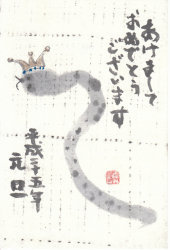 あけまして
お めでとう
ございます
平成二十五年
元旦